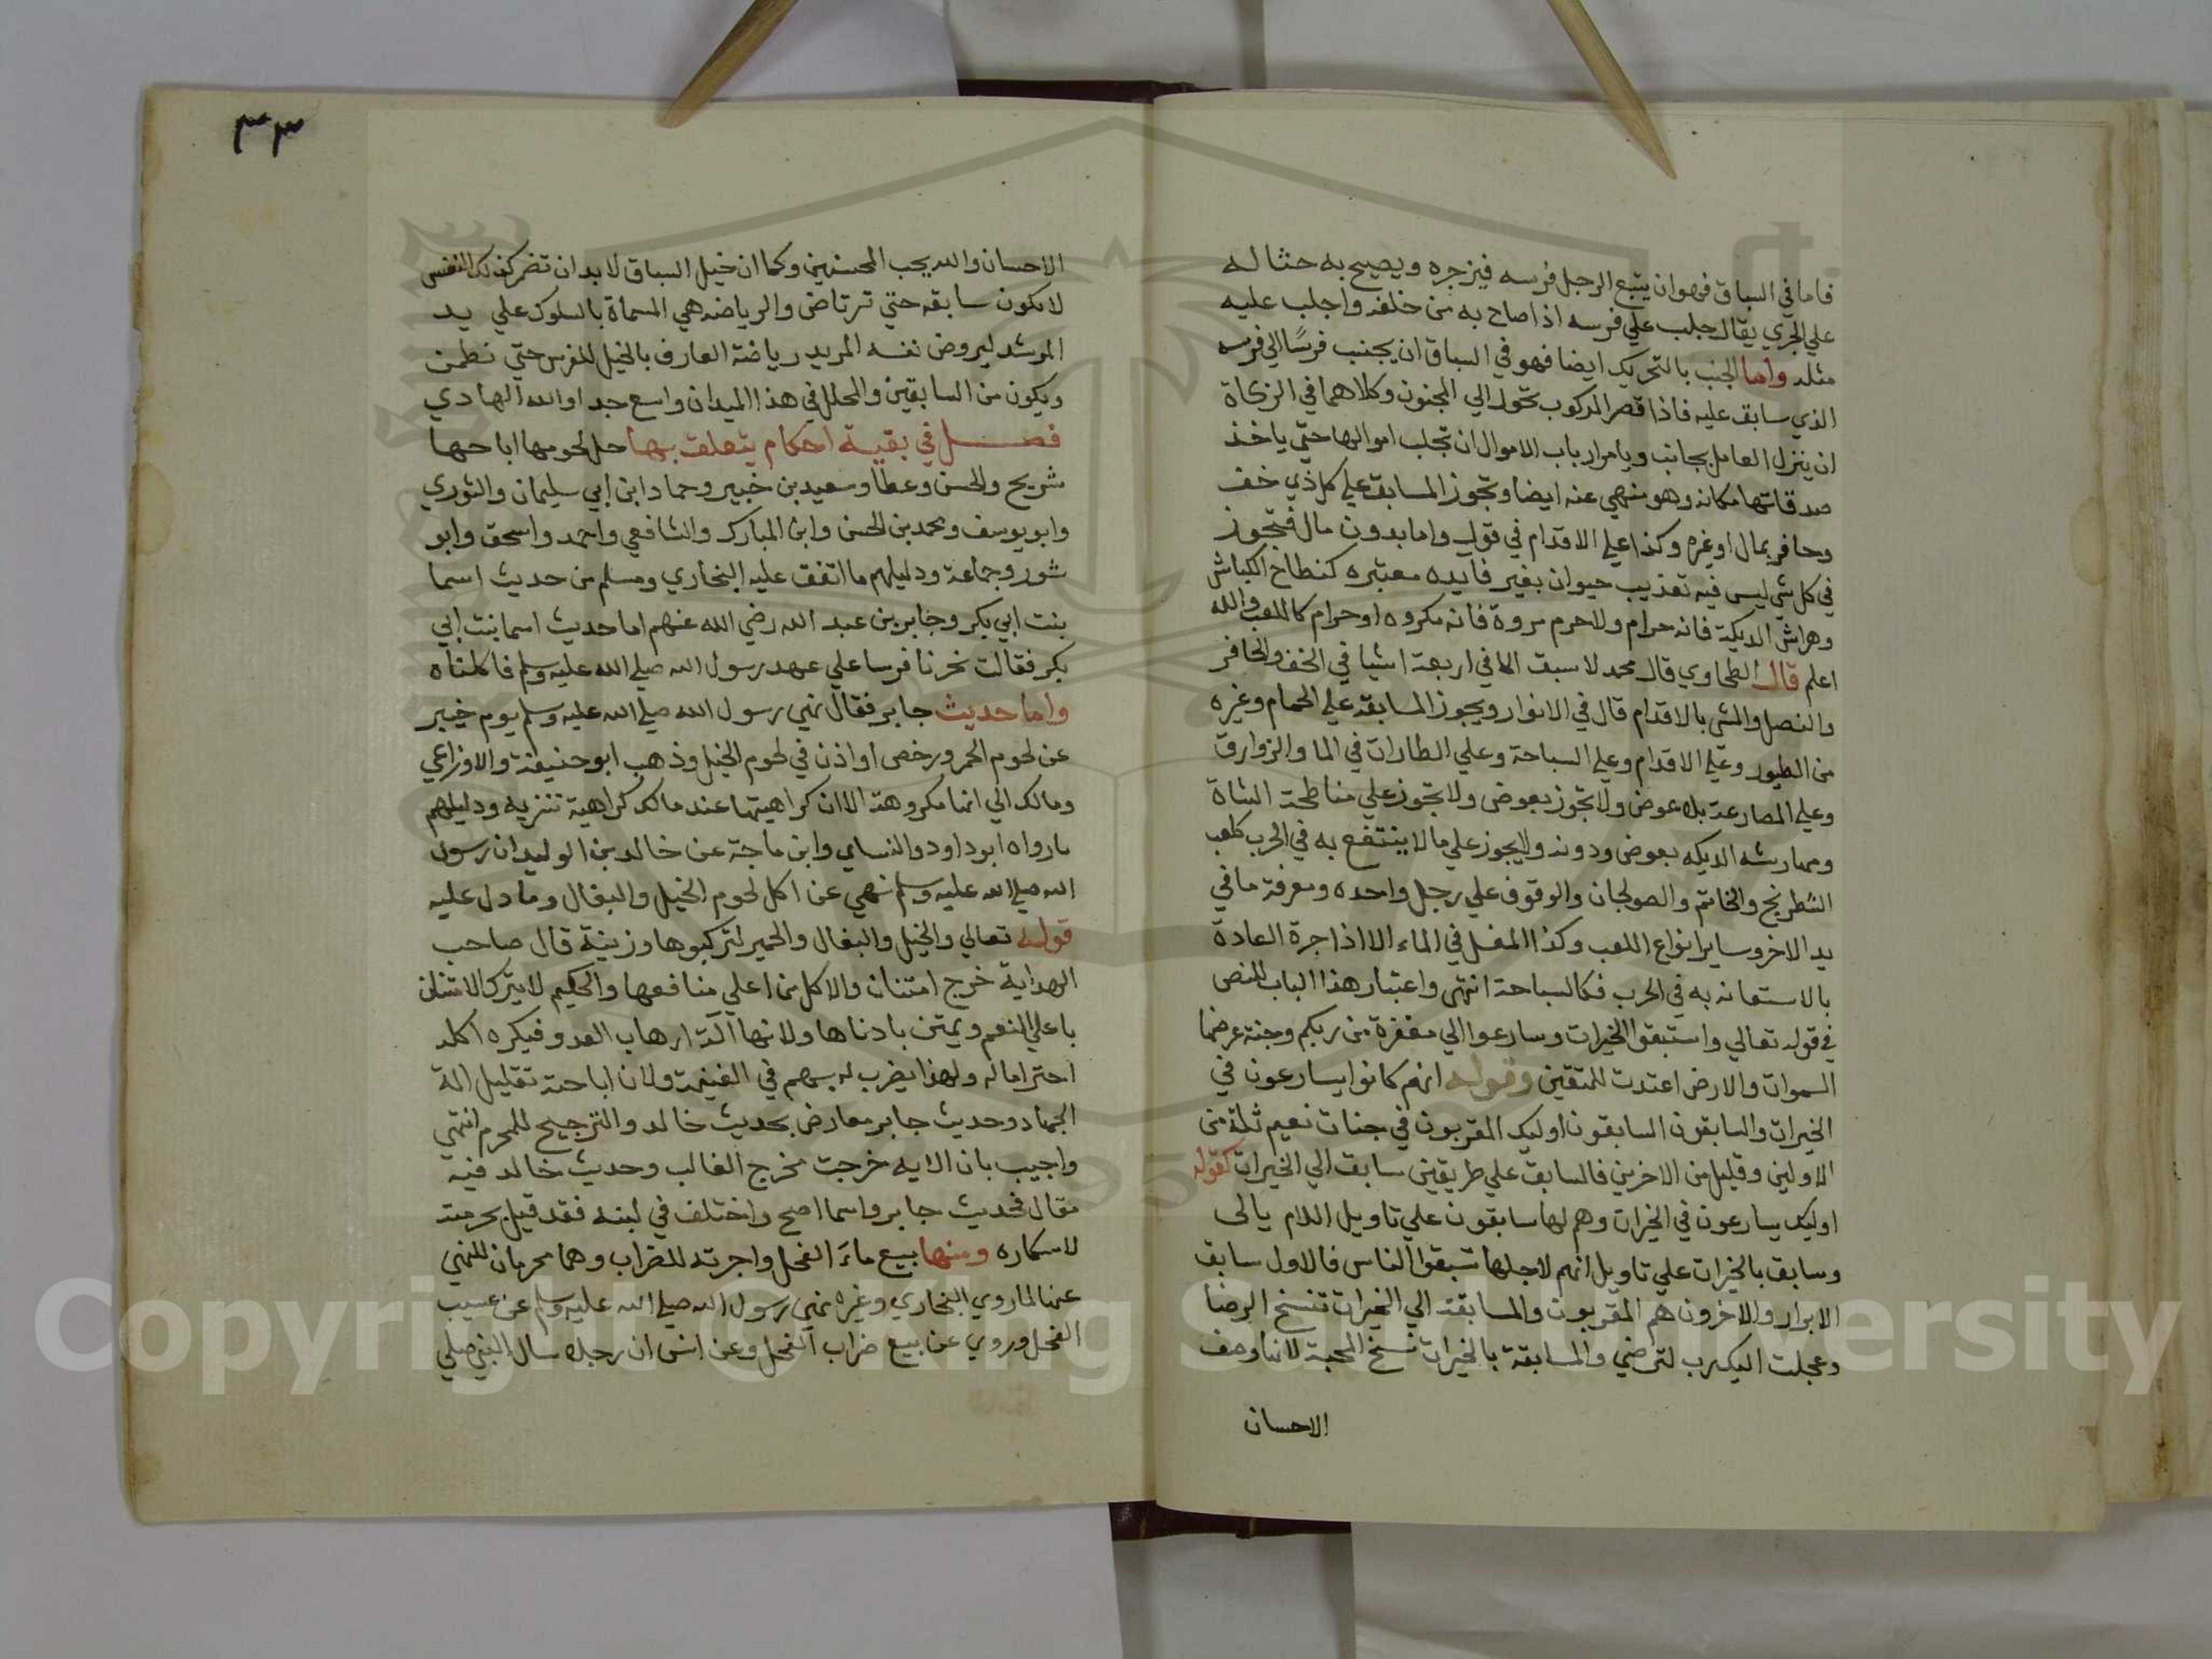 فاما في السباق فهو ان يتبع الرجل فرسه فيزجره ويصيح به حثا له
علي الجري يقال جلب علي فرسه اذا صاح به من خلفه واجلب عليه
مثله واما الجنب بالتحريك ايضا فهو في السباق ان يجنب فرسًا الي فرسه
الذي سابق عليه فاذا قصر المركوب تحول الي المجنون وكلاهما في الزكاة
ان ينزل العامل بجانب ويامر ارباب الاموال ان تجلب اموالها حتي ياخذ
صدقاتها مكانه وهو منهي عنه ايضا وتجوز المسابقة علي كل ذي خف
وحافر بمال او غيره وكذا علي الاقدام في قول واما بدون مال فتجوز
في كل شي ليس فيه تعذيب حيوان بغير فايده معتبره كنطاح الكباش
وهراش الديكة فانه حرام ولا حرم مروة فانه مكروه او حرام كاللعب والله
اعلم قال الطحاوي قال محمد لا سبق الا في اربعة اشيا في الخف والحافر
والنصل والمشي بالاقدام قال في الانوار ويجوز المسابقة علي الحمام وغيره
من الطيور وعلي الاقدام وعلي السباحة وعلي الطارات في الما والزوارق
وعلي المصارعة بلا عوض ولا تجوز بعوض ولا تجوز علي مناطحة الشاة
ومهارشه الديكه بعوض ودونه ولا يجوز علي ما لا ينتفع به في الحرب كلعب
الشطرنج والخاتم والصولجان والوقوف علي رجل واحده ومعرفة ما في
يد الاخر وساير انواع اللعب وكذا المغل في الماء الا اذا جرة العادة
بالاستعانه به في الحرب فكالسباحة انتهي واعتبار هذا الباب للنص
في قوله تعالي واستبقوا الخيرات وسارعوا الي مغفرة من ربكم وجنة عرضها
السموات والارض اعتدت للمتقين وقوله انهم كانوا يسارعون في
الخيرات والسابقون السابقون اوليك المقربون في جنات نعيم ثلة من
الاولين وقليل من الاخرين فالسابق علي طريقين سابق الي الخيرات كقوله
اوليك يسارعون في الخيرات وهم لها سابقون علي تاويل اللام يالى
وسابق بالخيرات علي تاويل انهم لاجلها سبقوا الناس فالاول سابق
الابرار والاخرون هم المقربون والمسابقة الي الخيرات تنسخ الرضا
وعجلت اليك رب لترضي والمسابقة بالخيرات تنسخ المحبة لانها وصف
الاحسان
٣٣
الاحسان والله يجب المحسنين وكما ان خيل السباق لا بد ان تضمر كذلك النفس
لا تكون سابقه حتي ترتاض والرياضه هي المسماة بالسلوك علي يد
المرشد ليروض نفسه المريد رياضة العارف بالخيل للفرس حتي تطمن
ويكون من السابقين والمحلل في هذا الميدان واسع جدا والله الهادي
فصل في بقية احكام يتعلق بها حل لحومها اباحها
شريح والحسن وعطا وسعيد بن خبير وحماد ابن ابي سليمان والثوري
وابو يوسف ومحمد بن الحسن وابن المبارك والشافعي واحمد واسحق وابو
ثور وجماعة ودليلهم ما اتفق عليه البخاري ومسلم من حديث اسما
بنت ابي بكر وجابر بن عبد الله رضي الله عنهم اما حديث اسما بنت ابي
بكر فقالت نحرنا فرسا علي عهد رسول الله صلي الله عليه وسلم فاكلناه
واما حديث جابر فقال نهي رسول الله صلي الله عليه وسلم يوم خيبر
عن لحوم الحمر ورخص او اذن في لحوم الخيل وذهب ابو حنيفة والاوزاعي
ومالك الي انها مكروهة الا ان كراهيتها عند مالك كراهية تنزيه ودليلهم
ما رواه ابو داود والنساي وابن ماجة عن خالد بن الوليد ان رسول
الله صلي الله عليه وسلم نهي عن اكل لحوم الخيل والبغال وما دل عليه
قوله تعالي والخيل والبغال والحمير لتركبوها وزينة قال صاحب
الهداية خرج امتنان والاكل من اعلي منافعها والحكيم لا يترك الامتنان
باعلي النعم ويمتن بادناها ولانها آلة ارهاب العدو فيكره اكله
احتراما له ولهذا يضرب له بسهم في الغنيمة ولان اباحته تقليل الة
الجهاد وحديث جابر معارض بحديث خالد والترجيح للمحرم انتهي
واجيب بان الايه خرجت مخرج الغالب وحديث خالد فيه
مقال فحديث جابر واسما اصح واختلف في لبنه فقد قيل بحرمته
لاسكاره ومنها بيع ماء الفحل واجرته للضراب وهما محرمان للنهي
عنها لما روي البخاري وغيره نهي رسول الله صلي الله عليه وسلم عن عسيب
الفحل وروي عن بيع ضراب الفحل وعن انس ان رجلا سال النبي صلي
Copyright © King Saud University